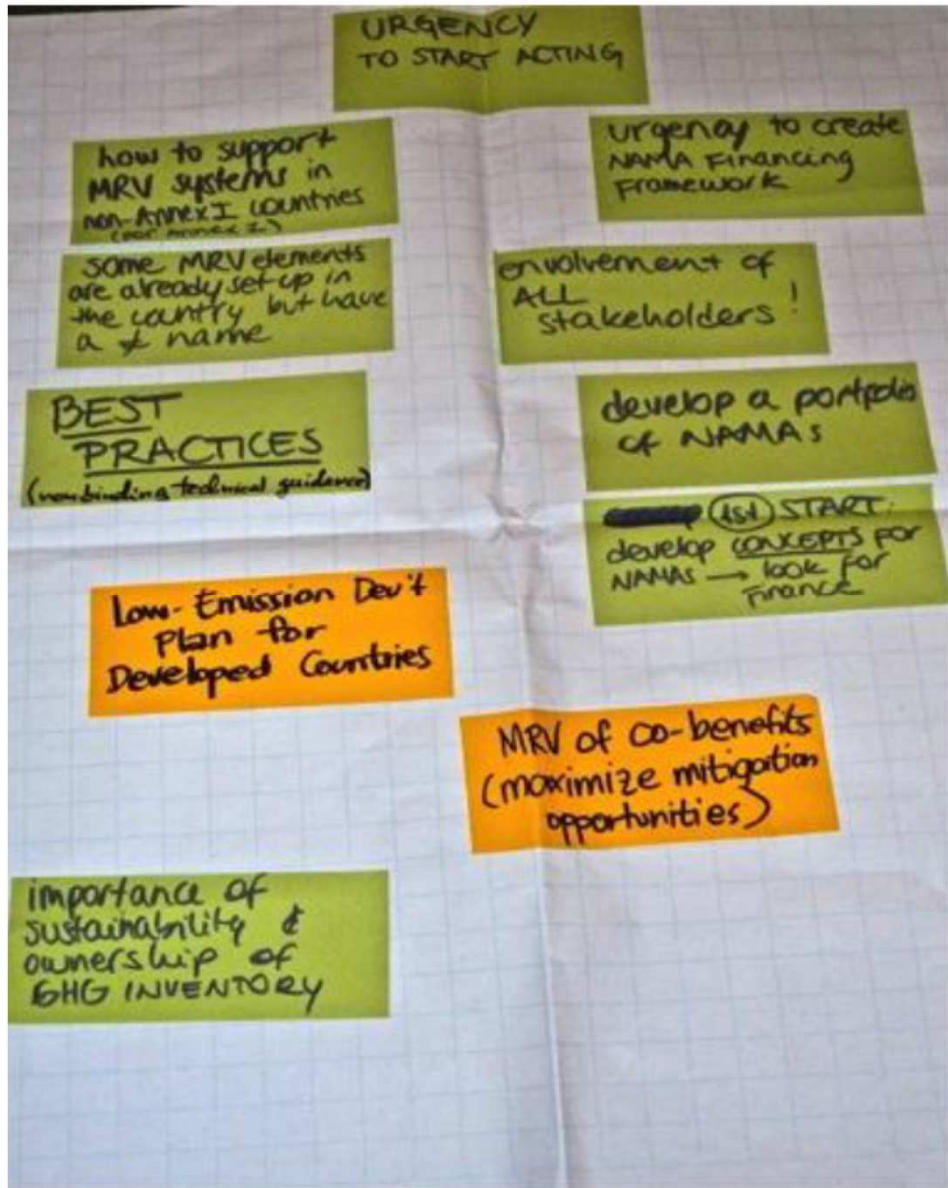 URGENCY
TO START ACTING
how to support
MRV systems in
non-Annex I countries
(for Annex I)
some MRV elements
are already set up in
the country but have
a ≠ name
BEST
PRACTICES
(non binding technical guidance)
Low-Emission Dev't
Plan for
Developed Countries
importance of
sustainability &
ownership of
GHG INVENTORY
urgency to create
NAMA Financing
Framework
envolvement of
ALL
stakeholders !
develop a portfolio
of NAMAs
1st START:
develop CONCEPTS FOR
NAMAs → look for
Finance
MRV of co-benefits
(maximize mitigation
opportunities)